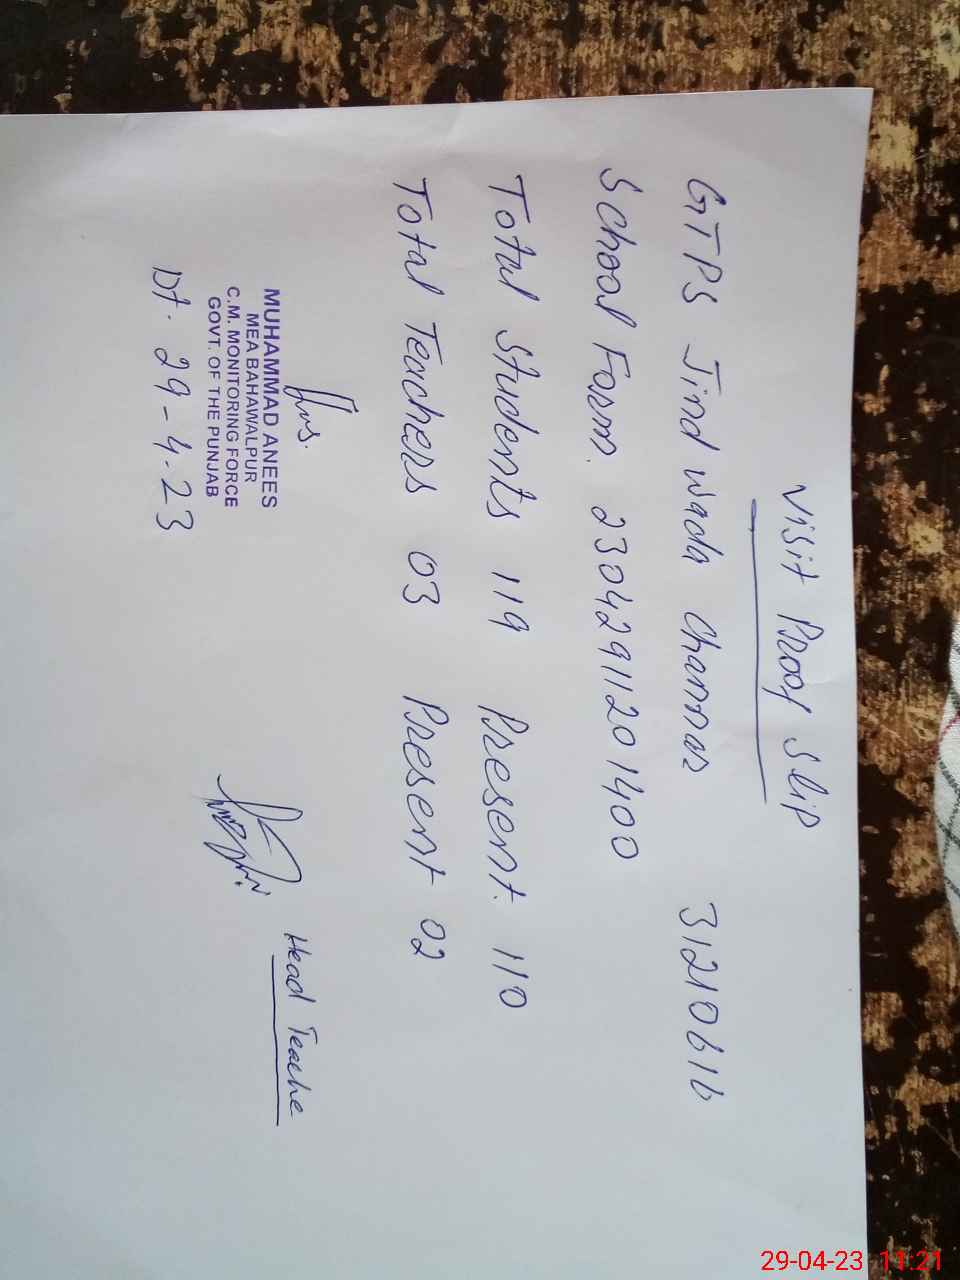 Visit Proof Slip
GTPS Jind wada Channar 31210616
School Form. 2304291120 1400
Total Students 119 Present. 110
Total Teachers 03 Present 02
MUHAMMAD ANEES
MEA BAHAWALPUR
C.M. MONITORING FORCE
GOVT. OF THE PUNJAB
Dt. 29-4-23
Head Teache
29-04-23 11:21